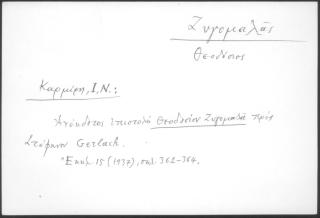 Ζυγομαλᾶς
Θεοδόσιος
Καρμίρη, Ι. Ν.:
Ἀνέκδοτος ἐπιστολὴ Θεοδοσίου Ζυγομαλᾶ πρὸς
Στέφανον Gerlach.
Ἐκκλ. 15 (1937), σελ. 362-364.